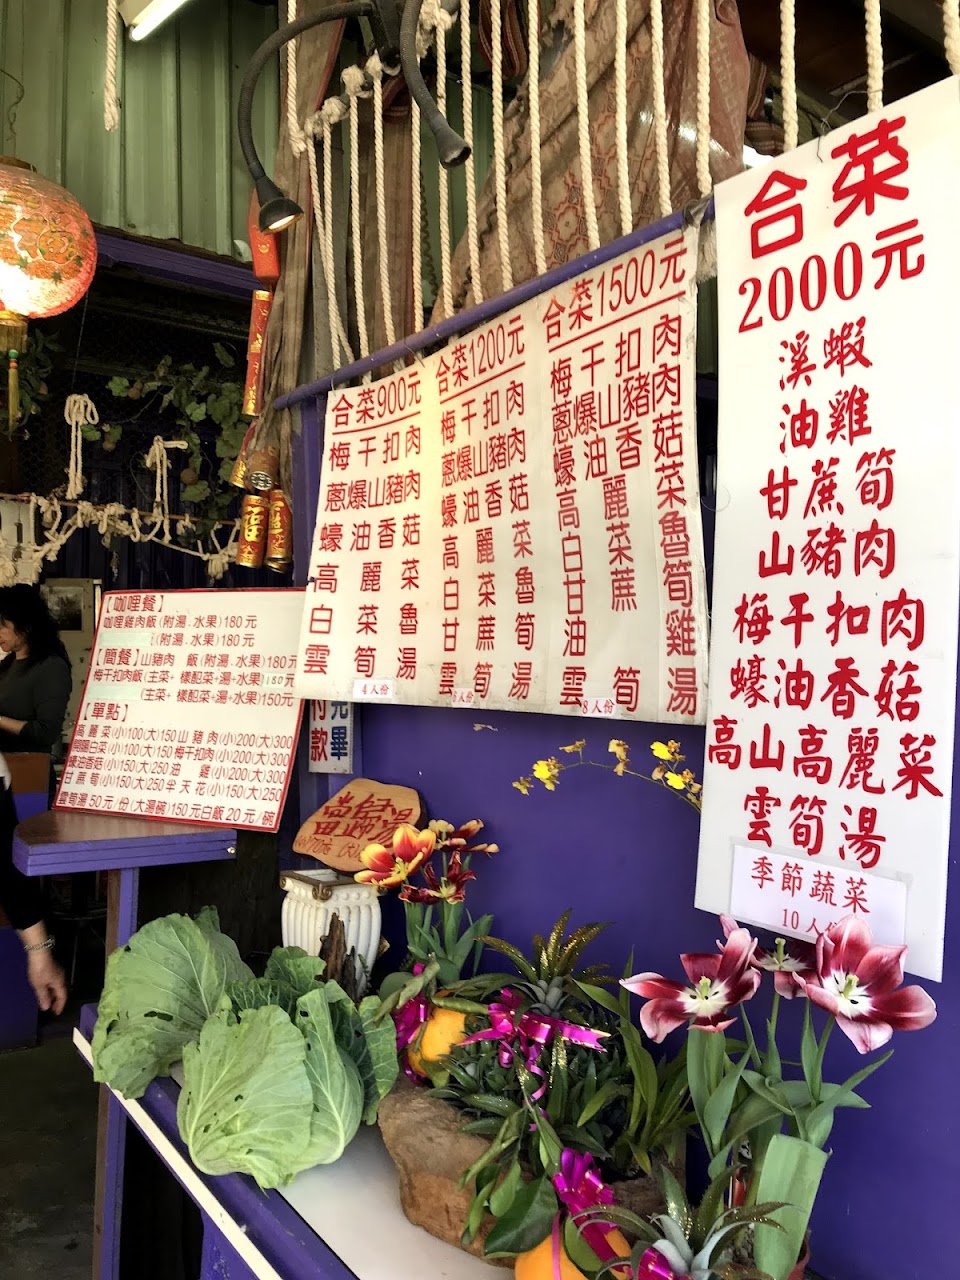 【咖哩餐】
咖哩雞肉飯(附湯.水果)180元
(附湯.水果)180元
【簡餐】山豬肉 飯(附湯.水果)180元
梅干扣肉飯(主菜+ 樣配菜+湯+水果)180元
(主菜+ 樣配菜+湯+水果)150元
【單點】
高麗菜(小)100(大)150山豬肉(小)200(大)300
開陽白菜(小)100(大)150梅干扣肉(小)200(大)300
蠔油香菇(小)150(大)250油 雞(小)200(大)300
甘蔗筍(小)150(大)250半天花(小)150(大)250
雲筍湯50元/份(大湯碗)150元白飯20元/碗
完畢
付款
合菜900元
梅干扣肉
蔥爆山豬肉
蠔油香菇
高麗菜
白菜魯
雲筍湯
4人份
合菜1200元
梅干扣肉
蔥爆山豬肉
蠔油香菇
高麗菜
白菜魯
甘蔗筍
雲筍湯
人份
合菜1500元
梅干扣肉
蔥爆山豬肉
蠔油香菇
高麗菜
白菜魯
甘蔗筍
油雞
雲筍湯
8人份
合菜
2000元
溪蝦
油雞
甘蔗筍
山豬肉
梅干扣肉
蠔油香菇
高山高麗菜
雲筍湯
季節蔬菜
10人份
當歸湯
福